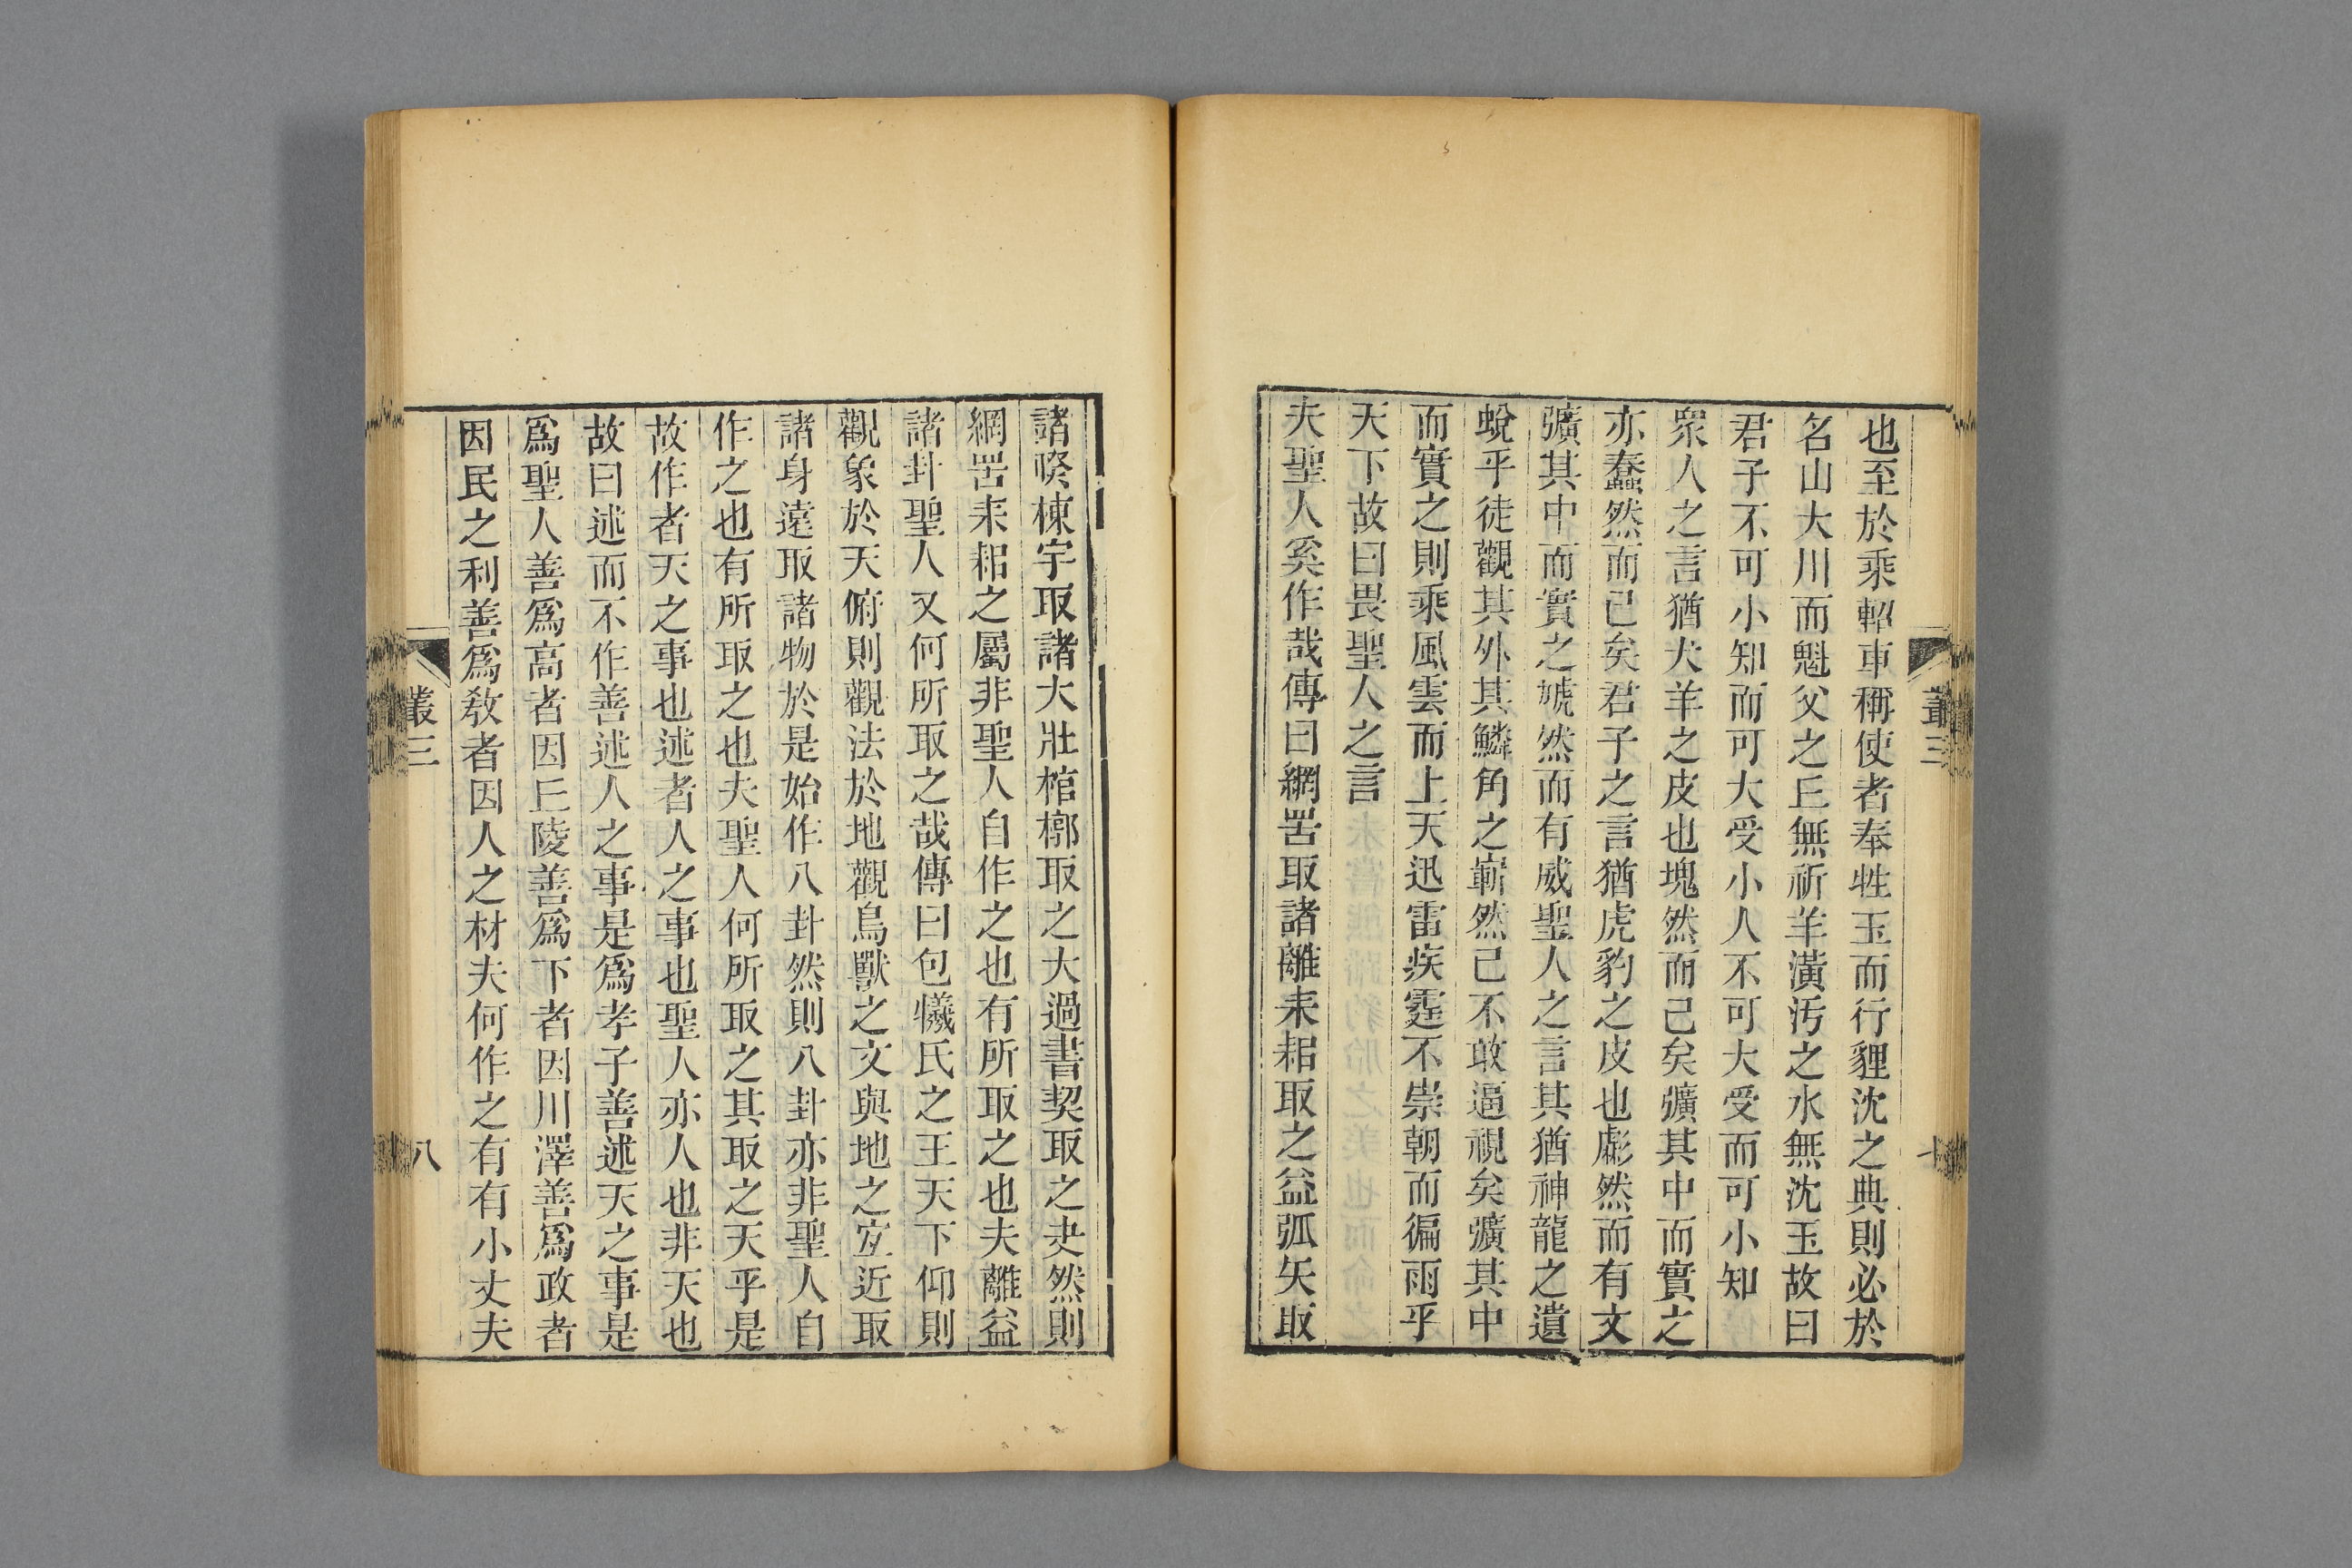 叢三
七
也至於乘軺車稱使者奉牲玉而行貍沈之典則必於
名山大川而魁父之丘無祈羊潢汚之水無沈玉故曰
君子不可小知而可大受小人不可大受而可小知
衆人之言猶犬羊之皮也塊然而已矣彍其中而實之
亦蠢然而已矣君子之言猶虎豹之皮也彪然而有文
彍其中而實之虓然而有威聖人之言其猶神龍之遺
蛻乎徒觀其外其鱗角之嶄然已不敢逼視矣彍其中
而實之則乘風雲而上天迅雷疾霆不崇朝而徧雨乎
天下故曰畏聖人之言
夫聖人奚作哉傳曰網罟取諸離耒耜取之益弧矢取
諸睽棟宇取諸大壯棺槨取之大過書契取之夬然則
網罟耒耜之屬非聖人自作之也有所取之也夫離益
諸卦聖人又何所取之哉傳曰包犧氏之王天下仰則
觀象於天俯則觀法於地觀鳥獸之文與地之宜近取
諸身遠取諸物於是始作八卦然則八卦亦非聖人自
作之也有所取之也夫聖人何所取之其取之天乎是
故作者天之事也述者人之事也聖人亦人也非天也
故曰述而不作善述人之事是爲孝子善述天之事是
爲聖人善爲高者因丘陵善爲下者因川澤善爲政者
因民之利善爲教者因人之材夫何作之有有小丈夫
叢三
八